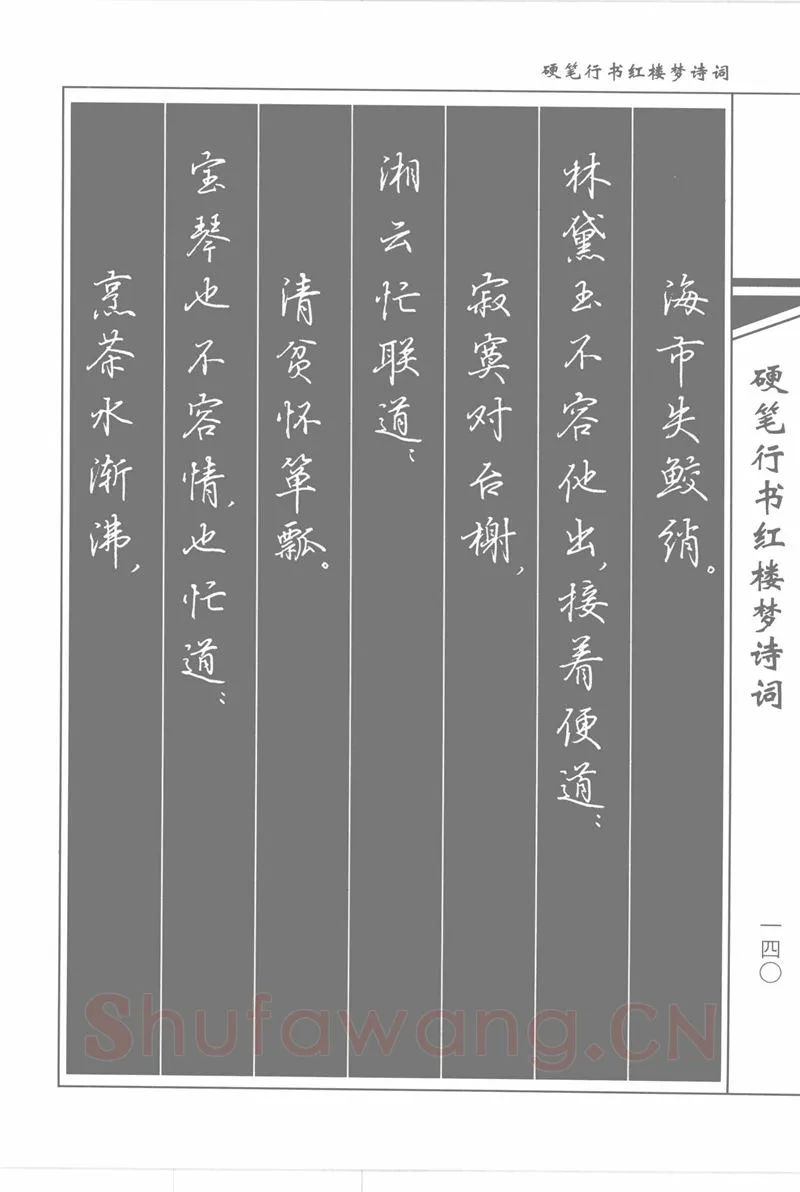 硬笔行书红楼梦诗词
海市失鲛绡。
林黛玉不容他出,接着便道:
寂寞对台榭,
湘云忙联道:
清贫怀箪瓢。
宝琴也不容情,也忙道:
烹茶水渐沸,
硬笔行书红楼梦诗词
一四〇
Shufawang.CN